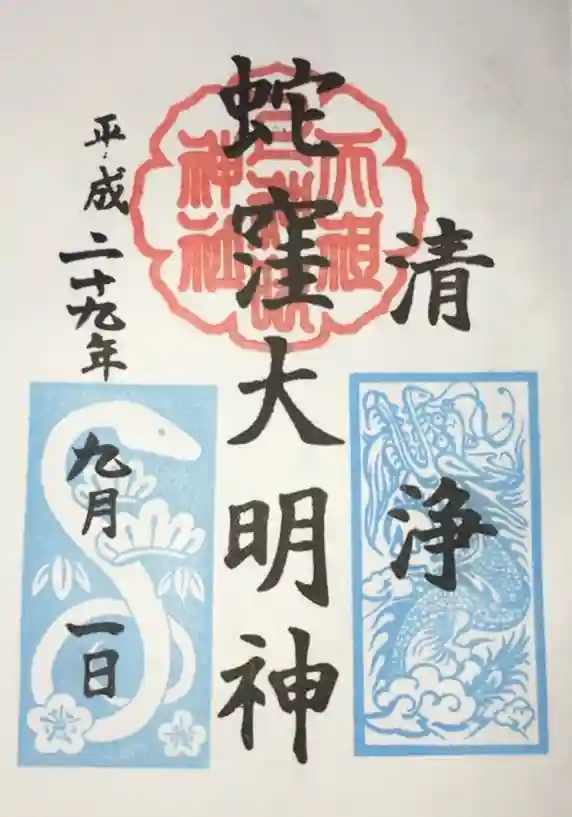 清浄
蛇窪大明神
平成二十九年
九月一日
神社